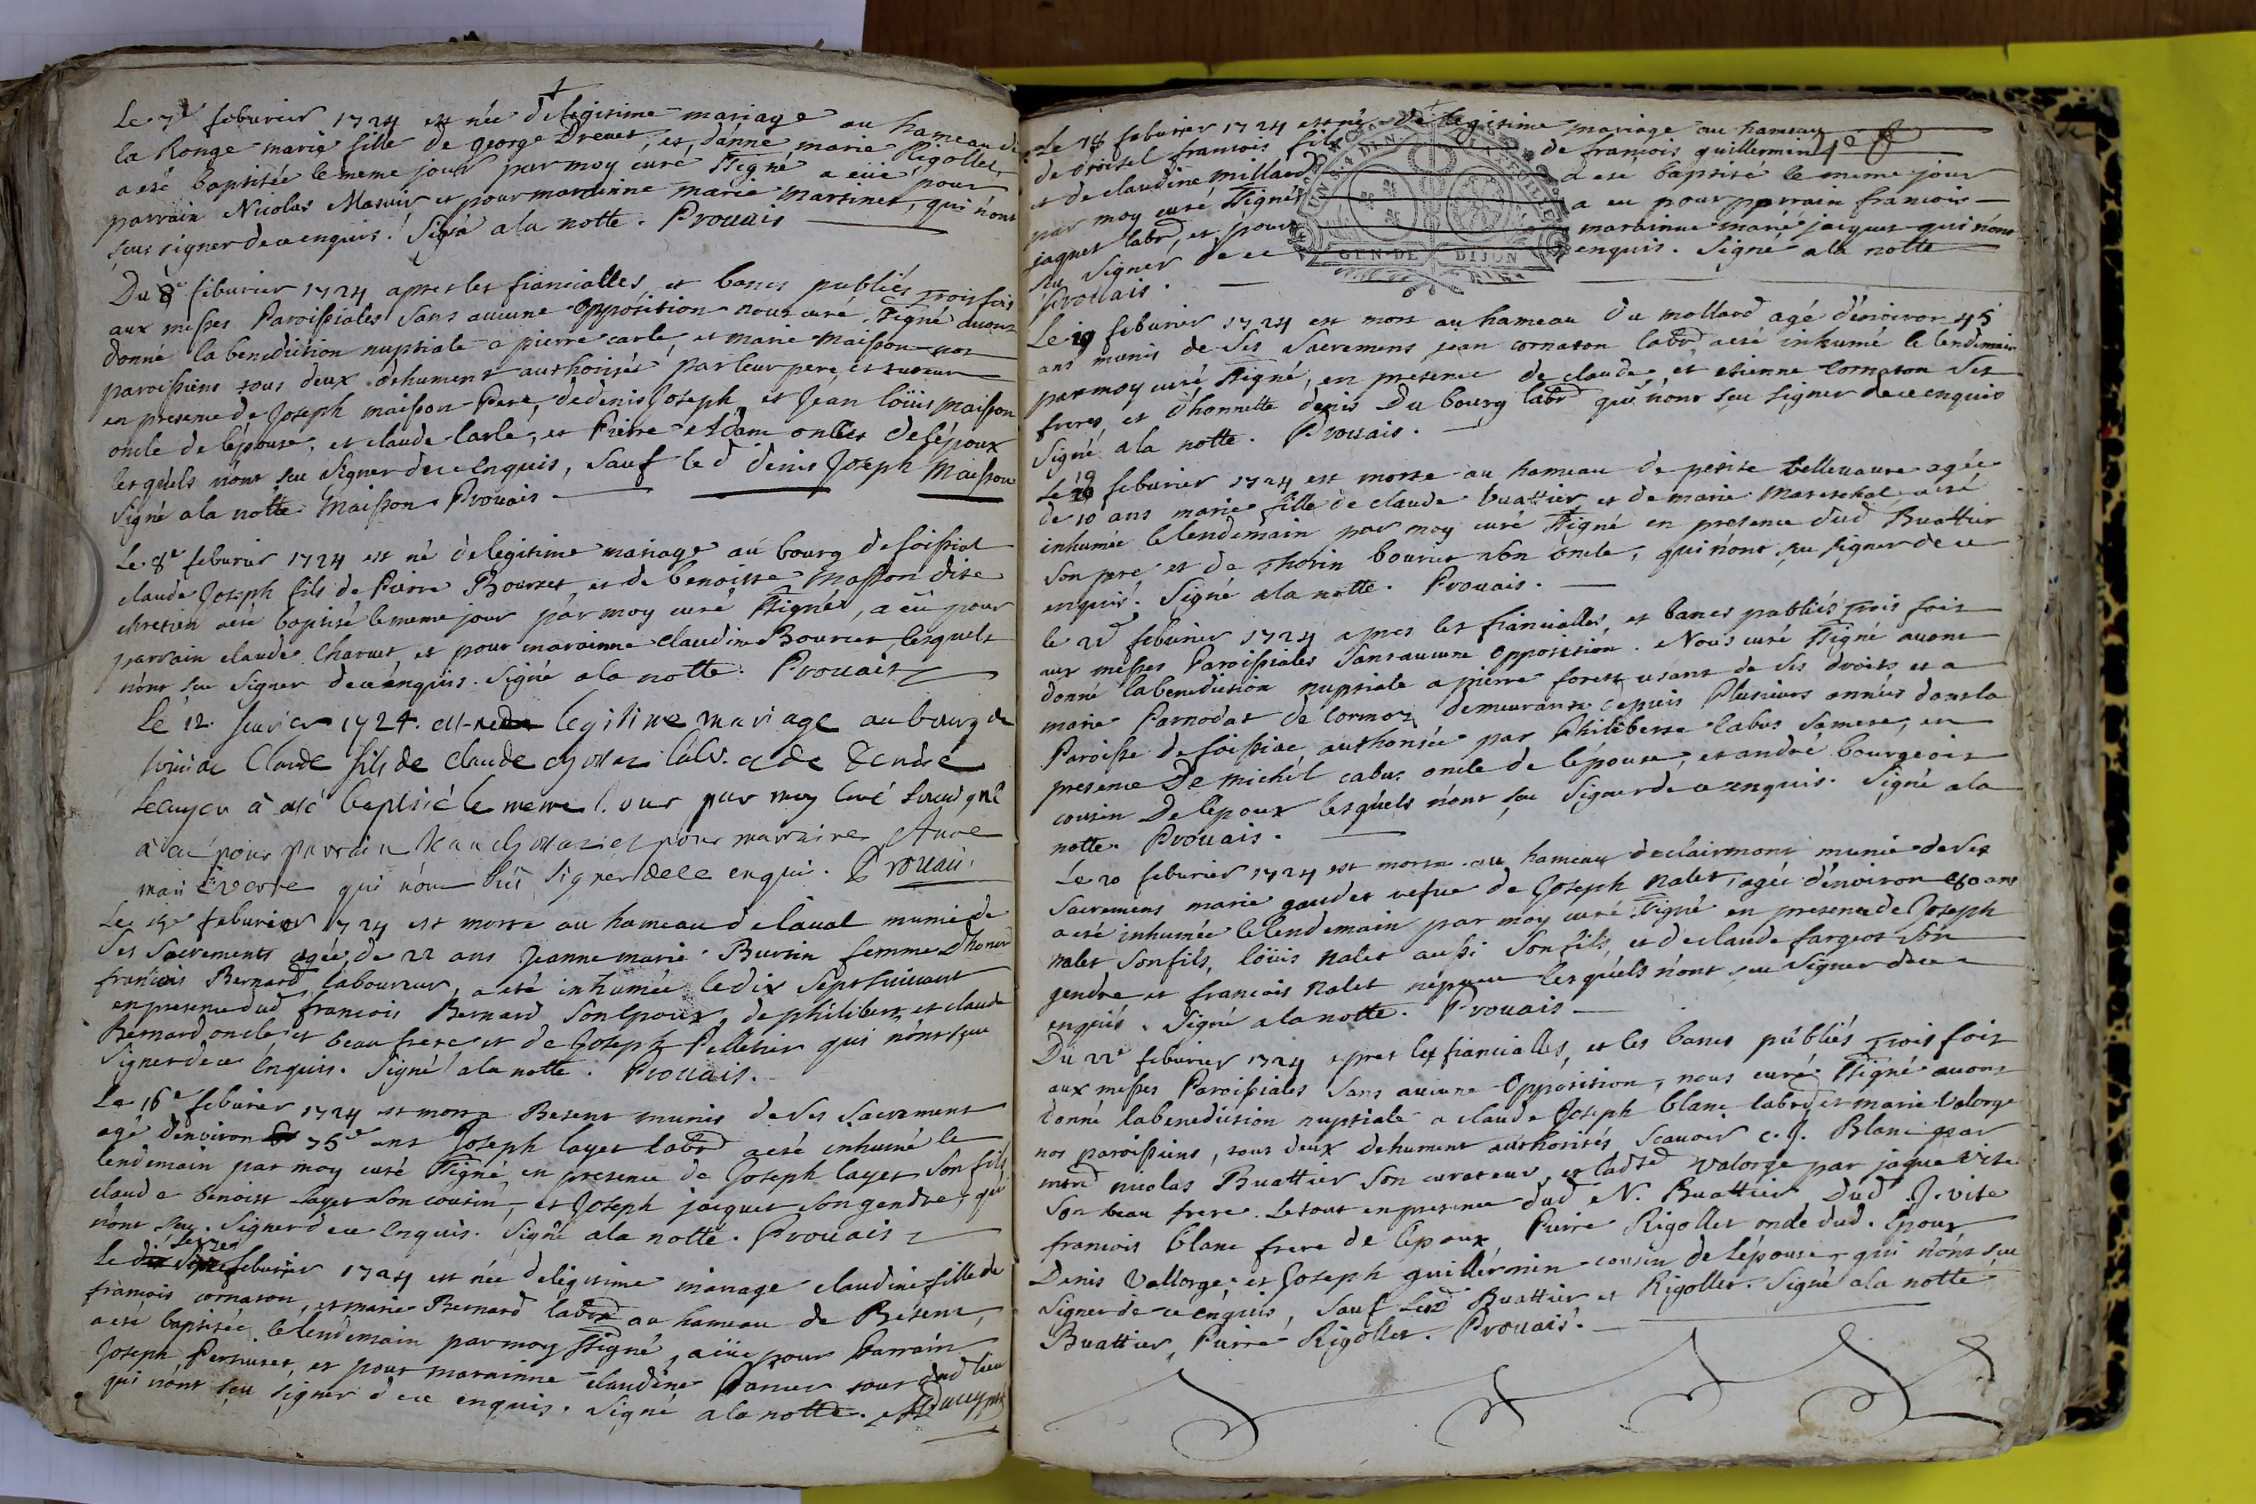 Le 7e feburier 1724 est née de legitime mariage au hameau de
la Ronge marie fille de george Dreuet, et, d'anne marie Rigollet,
a esté baptisée le meme jour par moy curé ssigné a eüe pour
parrain Nicolas Masuir et pour marainne marie martinet, qui n'ont
sceu signer de ce enquis. Signé a la notte. Prouais
Du 8e feburier 1724 apres les fiancialles, et bancs publiés trois fois
aux messes Paroissiales sans aucune opposition nous curé ssigné avons
donné la benediction nuptiale a pierre carle, et marie maisson nos
paroissiens tous deux dehument authorisés par leur pere, et
en presence de Joseph maisson Pere, de denis Joseph et Jean loüis maisson
oncle de lépouse, et claude Carle, et Pierre Adam oncles de lépoux
lesquels n'ont sceu signer de ce Enquis, sauf led denis Joseph maisson
signé a la notte Maisson Prouais
Le 8e feburier 1724 est né de legitime mariage au bourg de foissiat
claude Joseph fils de Pierre Bourcet, et de benoitte masson dite
chretien a esté baptisé le meme jour par moy curé ssigné, a eü pour
parrain claude Charvet et pour marainne claudine Bourcet lesquels
n'ont sceu signer de ce enquis. Signé a la notte. Prouais
Le 12. fevrier 1724. est né de legitime mariage au bourg de
foissiac Claude fils de claude labr. et de
Lecuyer à esté baptisé le meme jour par moy curé soussigné
à eu pour parrain Jean et pour marraine Anne
marie qui n'ont sçu signer de ce enquis. Prouais.
Le 15e feburier 1724 est morte au hameau de laval munie de
ses sacrements agée de 22 ans Jeanne marie Burtin femme dhonnete
francois Bernard laboureur, a esté inhumée le dix sept suivant
en presence dud francois Bernard son Epoux, de philibert, et claude
Bernard oncle et beau frere et de Joseph Pelletier qui n'ont sceu
signer de ce Enquis. Signé a la notte. Prouais.
Le 16e feburier 1724 est mort a Besent munis de ses sacrement
agé denviron 75 ans Joseph layet labrd a esté inhumé le
lendemain par moy curé ssigné, en presence de Joseph layet son fils
claude benoist layet son cousin, et Joseph jacquet son gendre, qui
n'ont sceu signer de ce Enquis. Signé a la notte. Prouais
Le seize feburier 1724 est née de légitime mariage claudine fille de
francois cornaton, et marie Bernard labrd au hameau de Besent,
a esté baptisée le lendemain par moy ssigné, a eüe pour Parrain
Joseph Pernuset, et pour marainne claudine Panier tous dud lieu
qui n'ont sceu signer de ce enquis. Signé a la notte.
Le 18 feburier 1724 est né de legitime mariage au hameau
de francois fils de francois guillermin
et de claudine millard a esté baptisé le meme jour
par moy curé ssigné a eu pour parrain francois
jaquet labrd, et pour marainne marie jacquet qui n'ont
su signer de ce enquis. Signé a la notte
Prouais.
GEN. DE DIJON
Le 19 feburier 1724 est mort au hameau du mollard agé d'environ 45
ans munis de ses sacremens jean cornaton labrd a esté inhumé le lendemain
par moy curé ssigné, en presence de claude, et etienne Cornaton ses
freres, et d'honnette denis Du bourg labrd qui n'ont sceu signer de ce enquis
signé a la notte. Prouais.
Le 19 feburier 1724 est morte au hameau de petite bellevavre agée
de 10 ans marie fille de claude buattier et de marie mareschal a esté
inhumée le lendemain par moy curé ssigné en presence dud Buattier
son pere et de thorin bourcet son oncle, qui n'ont sceu signer de ce
enquis. Signé a la notte. Prouais.
le 21 feburier 1724 apres les fiancialles, et bancs publiés trois fois
aux messes Paroissiales sans aucune opposition. Nous curé ssigné avons
donné la benediction nuptiale a pierre forest usant de ses droits et a
marie Parnodat de Cormoz demeurante depuis Plusieurs années dans la
Paroisse de foissiac authorisée par philiberte Cabus sa mere, en
presence De michel cabus oncle de lépouse, et andré bourgeois
cousin De lepoux lesquels n'ont sceu signer de ce enquis. Signé a la
notte. Prouais.
Le 20 feburier 1724 est morte au hameau de clairmont munie de ses
sacremens marie gaudet vefue de Joseph nalet, agée d'environ 80 ans
a esté inhumée le lendemain par moy curé ssigné en presence de Joseph
nalet son fils, loüis nalet aussi son fils, et de claude fargeot son
gendre et francois nalet népveu lesquels n'ont sceu signer de ce
enquis. Signé a la notte. Prouais
Du 22e feburier 1724 apres les fiancialles, et les bancs publiés trois fois
aux messes Paroissiales sans aucune opposition, nous curé ssigné avons
donné la benediction nuptiale a claude Joseph blanc labrd et marie Valorge
nos paroissiens, tous deux dehument authorisés scauoir c. J. Blanc par
nicolas Buattier son curateur, et ladte valorge par jaque vite
son beau frere. Le tout en presence dud N. Buattier, Dud J. vite
francois blanc frere de lépoux, Pierre Rigollet oncle dud. Epoux
Denis Vallorge, et Joseph guillermin cousin de lépouse qui n'ont sceu
signer de ce enquis, sauf lesd Buattier et Rigollet. Signé a la notte
Buattier, Pierre Rigollet. Prouais.